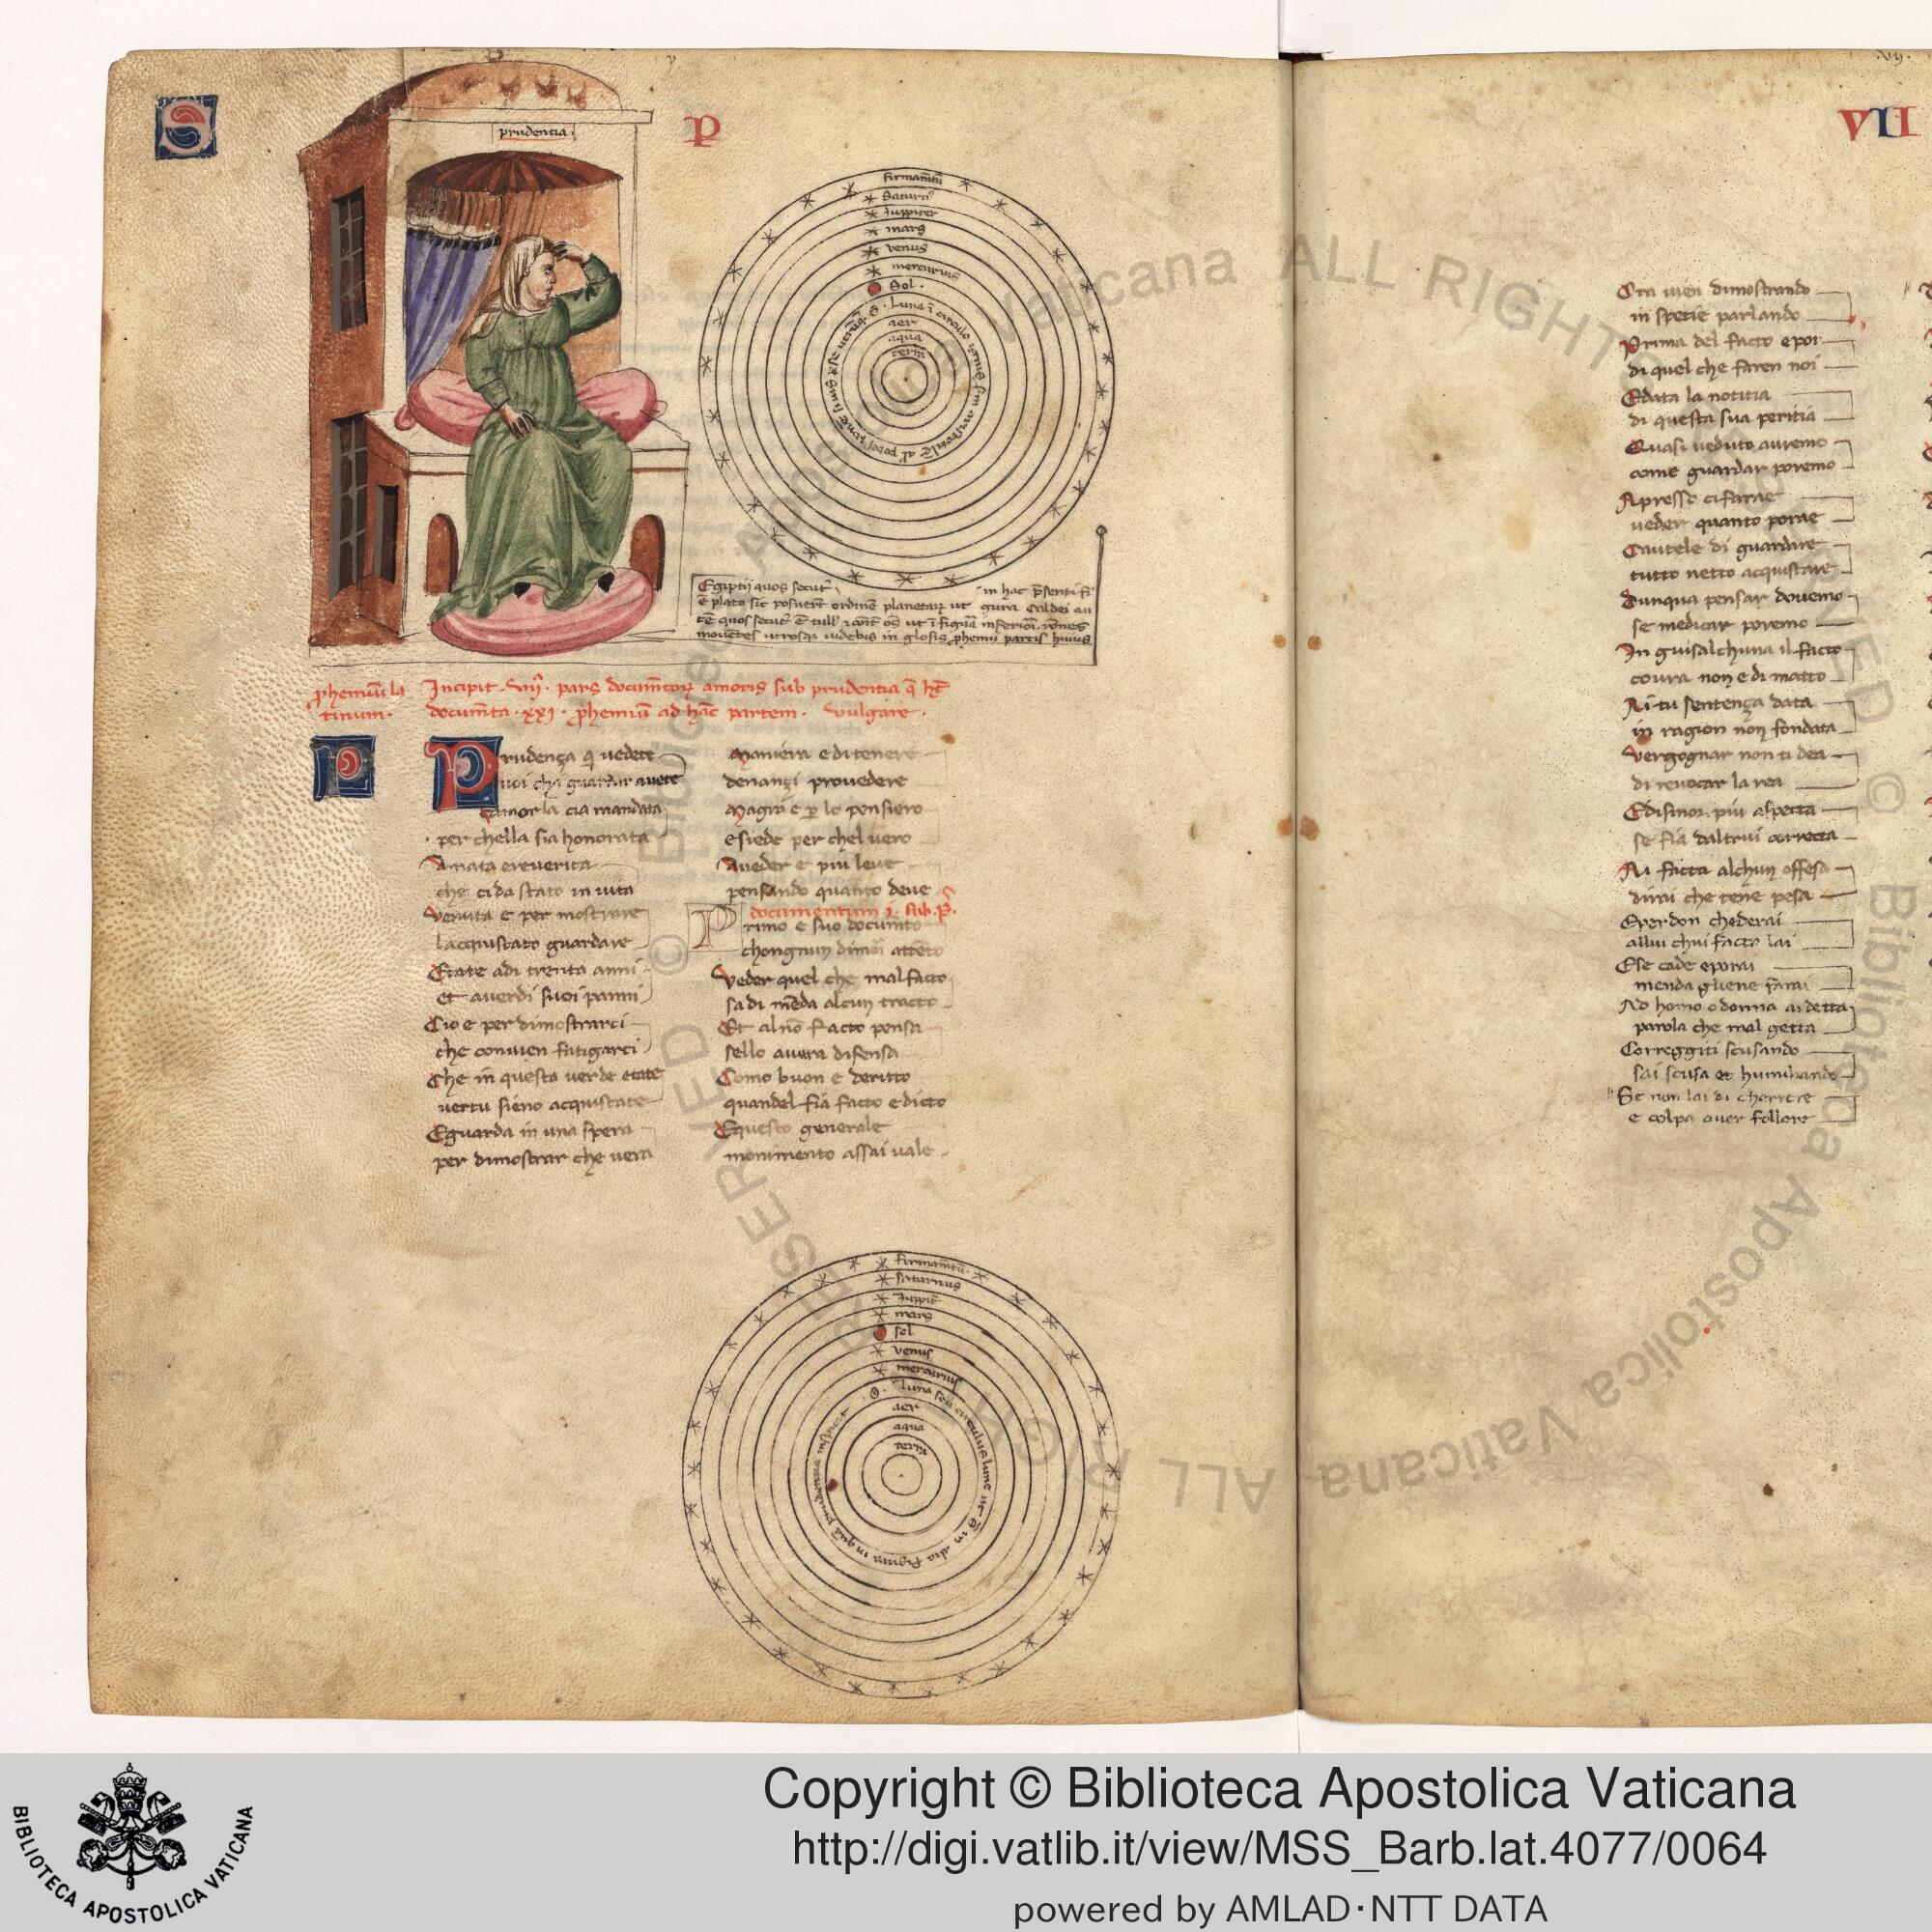 S
prudentia
P
VII
firmam̄tū
Saturn⁹
Juppiter
mars
venus
mercurius
Sol
Luna
aer
aqua
terra
Egiptij quos secut⁹ in hac p̄senti fi
ē plato sic posuer̄t ordinē planetar̄ ut gura Caldei au
mouētes utrosqꝫ uidebis in glosis ꝓhemij partis huius
ꝓhemiū la Incipit .vij. pars documētor̄ amoris sub prudentia q̄ ht̄
tinum. documēta .xxj. ꝓhemiū ad hāc partem. vulgare.
P
Prudença q̄ uedete
uoi cha guardar auete
Camor la cia mandata
per chella sia honorata
Amata e reuerita
che ci da stato in uita
Venuta e per mostrare
lacquistato guardare
Etate a di trenta anni
et auerdi suoi panni
Cio e per dimostrarci
che conuien fatigarci
Che in questa uerde etate
uertu sieno acquistate
Eguarda in una spera
per dimostrar che uera
Maniera e di tenere
denançi prouedere
Magra e per lo pensiero
e siede per chel uero
Aueder e piu leue
pensando quanto deue
documentum j. sub .p.
Primo e suo documēto
chongnun dimori attēto
Veder quel che mal facto
sa di mēda alcun tracto
Et al nō facto pensa
sello auera difensa
Como buon e deritto
quandel fia facto e dicto
Equesto generale
monimento assai uale
firmamētū
saturnus
Juppit̄
mars
sol
venus
mercurius
Luna seu circulus lune
aer
aqua
terra
Ora uien dimostrando
in spetie parlando
Prima del facto e poi
di quel che faren noi
Edata la notitia
di questa sua peritia
Quasi ueduto auremo
come guardar poremo
Apresso ci farae
ueder quanto porae
Cautele di guardare
tutto netto acquistare
Dunqua pensar douemo
se medicar poremo
In guisalchuna il facto
coura non e di matto
Ai tu sentença data
in ragion non fondata
Vergognar non ti dea
di reuocar la rea
Edisinor piu aspetta
se fia daltrui correcta
Ai facta alchun offesa
dirai che tene pesa
Eperdon chederai
allui chui facto lai
Ese cade e porai
menda gliene farai
Ad homo o donna ai detta
parola che mal getta
Correggiti scusando
sai scusa et humiliando
Se non lai di cherrere
e colpa auer follore
Copyright © Biblioteca Apostolica Vaticana
http://digi.vatlib.it/view/MSS_Barb.lat.4077/0064
powered by AMLAD·NTT DATA
BIBLIOTECA APOSTOLICA VATICANA
© Biblioteca Apostolica Vaticana ALL RIGHTS RESERVED
© Biblioteca Apostolica Vaticana ALL RIGHTS RESERVED